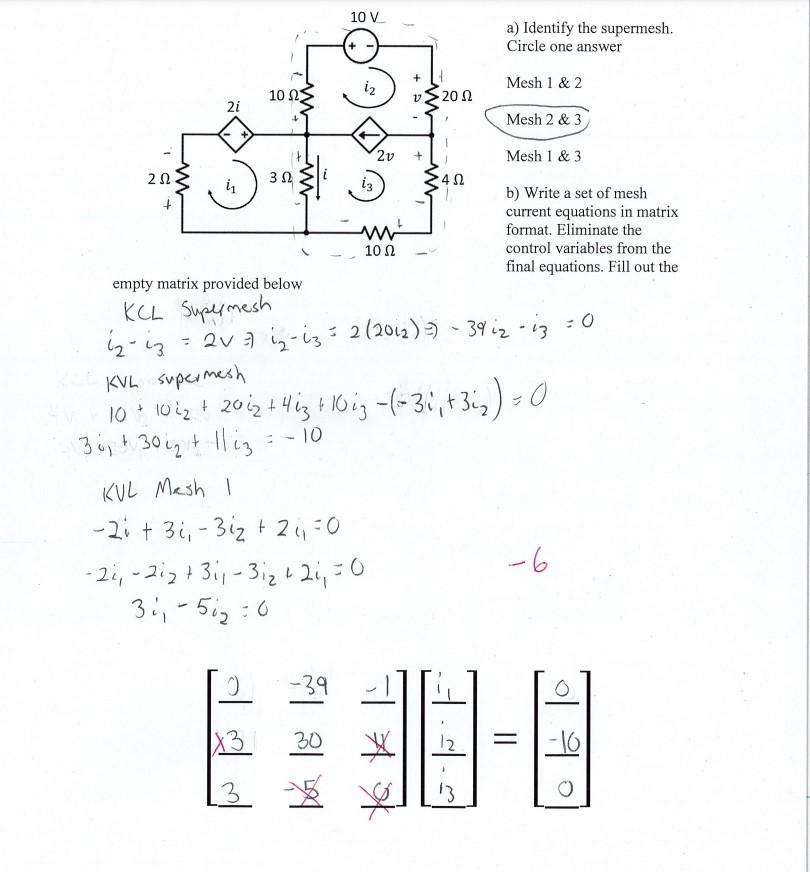 10 V
a) Identify the supermesh.
Circle one answer
+ -
10 Ω
i2
+
v
20 Ω
-
Mesh 1 & 2
Mesh 2 & 3
Mesh 1 & 3
2i
- +
2v
2 Ω
i1
3 Ω
i
i3
4 Ω
10 Ω
b) Write a set of mesh
current equations in matrix
format. Eliminate the
control variables from the
final equations. Fill out the
empty matrix provided below
KCL Supermesh
i2 - i3 = 2v ⇒ i2 - i3 = 2(20i2) ⇒ -39i2 - i3 = 0
KVL supermesh
10 + 10i2 + 20i2 + 4i3 + 10i3 - (-3i1 + 3i2) = 0
3i1 + 30i2 + 11i3 = -10
KVL Mesh 1
-2i + 3i1 - 3i2 + 2i1 = 0
-2i1 - 2i2 + 3i1 - 3i2 + 2i1 = 0
3i1 - 5i2 = 0
-6
0 -39 -1 i1 0
3 30 11 i2 = -10
3 -5 0 i3 0